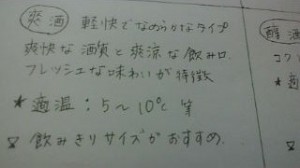 爽酒 軽快でなめらかなタイプ
爽快な酒質と爽涼な飲み口.
フレッシュな味わいが特徴
★適温：5〜10℃ 等
☆飲みきりサイズがおすすめ.
醇酒
コク
★適